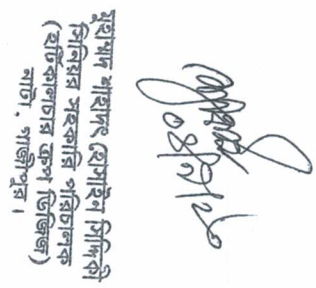 মুহাম্মদ শাহাদৎ হোসাইন সিদ্দিকী
সিনিয়র সহকারি পরিচালক
(হর্টিকালচার ক্রপ ডিভিশন)
নাটা, গাজীপুর।